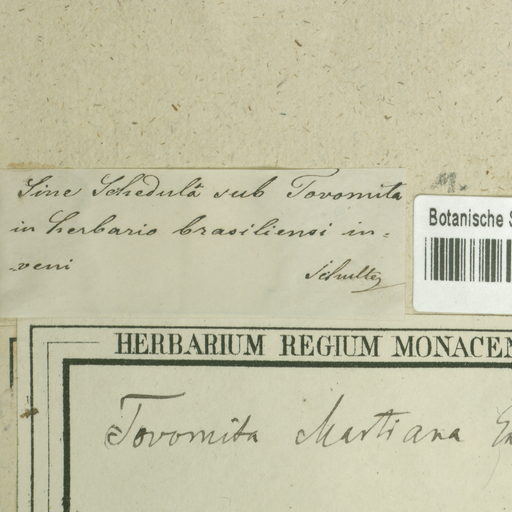 Sine Schedulâ sub Tovomita
in herbario brasiliensi in=
=veni
Schultes
M.
Botanische S
HERBARIUM REGIUM MONACEN
Tovomita Martiana En